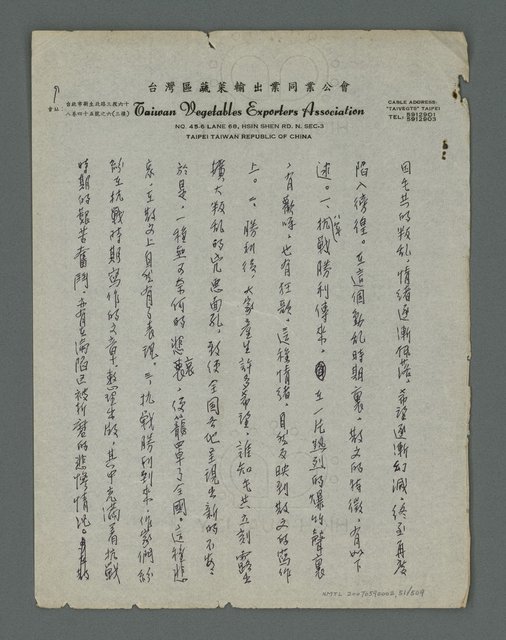 台灣區蔬菜輸出業同業公會
會址 台北市新生北路三段六十
八巷四十五號之六(三樓)
Taiwan Vegetables Exporters Association
NO. 45-6 LANE 68, HSIN SHEN RD. N. SEC-3
TAIPEI TAIWAN REPUBLIC OF CHINA
CABLE ADDRESS:
"TAIVEGTS" TAIPEI
TEL: 5912901
5912903
因為共的叛亂,情緒逐漸低落,希望逐漸幻滅,終至再度
陷入徬徨。在這個動亂時期裏,散文的特徵,有如下
述。一、抗戰勝利傳來,在一片熱烈的爆竹聲裏
,有歡呼,也有狂歌。這種情緒,自然反映到散文的寫作
上。二、勝利後,大家產生許多希望,誰知共立刻露出
擴大叛亂的究惡面孔,致使全國各地呈現出新的不安。
於是,一種無可奈何的悲哀,便籠罩了全國。這種悲
哀,在散文上自然有了表現。三、抗戰勝利到來,作家們紛
紛在抗戰時期寫作的文章,整理出版,其中充滿着抗戰
時期的艱苦奮鬥,亦有在淪陷區被折磨的悲慘情況。
NMTL 20070590002,51/509